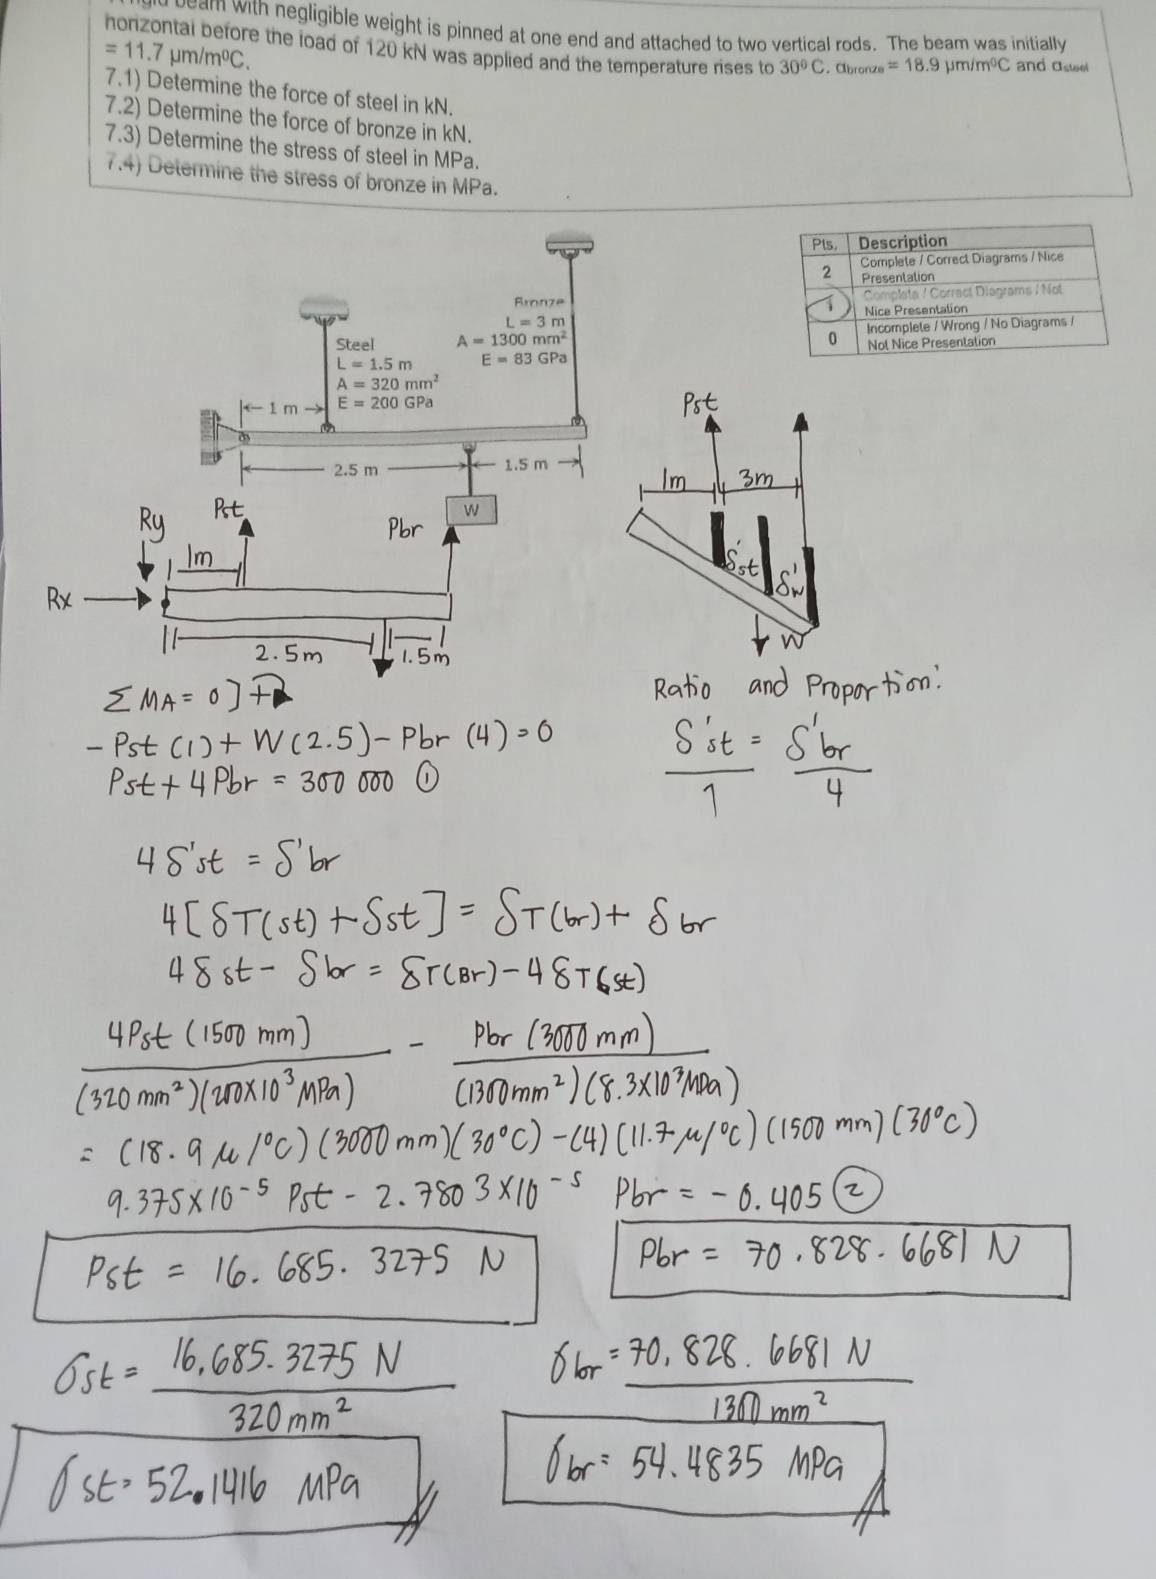 beam with negligible weight is pinned at one end and attached to two vertical rods. The beam was initially
horizontal before the load of 120 kN was applied and the temperature rises to 30⁰ C. αbronze = 18.9 μm/m⁰C and αsteel
= 11.7 μm/m⁰C.
7.1) Determine the force of steel in kN.
7.2) Determine the force of bronze in kN.
7.3) Determine the stress of steel in MPa.
7.4) Determine the stress of bronze in MPa.
Pts. Description
2 Complete / Correct Diagrams / Nice
Presentation
1 Complete / Correct Diagrams / Not
Nice Presentation
0 Incomplete / Wrong / No Diagrams /
Not Nice Presentation
Bronze
L = 3 m
A = 1300 mm²
E = 83 GPa
Steel
L = 1.5 m
A = 320 mm²
E = 200 GPa
1 m
2.5 m
1.5 m
W
Pst
1m 3m
δ'st
δ'w
W
Ry
Pst
Pbr
1m
Rx
2.5m
1.5m
ΣMA = 0] +
- Pst (1) + W (2.5) - Pbr (4) = 0
Pst + 4 Pbr = 300 000 ①
Ratio and Proportion:
δ'st = δ'br
1 4
4 δ'st = δ'br
4 [ δT(st) + δst ] = δT(br) + δbr
4 δst - δbr = δT(Br) - 4 δT(st)
4Pst (1500 mm) - Pbr (3000 mm)
(320 mm²)(200x10³ MPa) (1300mm²)(8.3x10³MPa)
= (18.9 μ/°C)(3000 mm)(30°C) - (4)(11.7 μ/°C)(1500 mm)(30°C)
9.375x10⁻⁵ Pst - 2.7803x10⁻⁵ Pbr = -0.405 ②
Pst = 16.685.3275 N
Pbr = 70.828.6681 N
σst = 16,685.3275 N
320 mm²
σbr = 70,828.6681 N
1300 mm²
σst = 52.1416 MPa
σbr = 54.4835 MPa